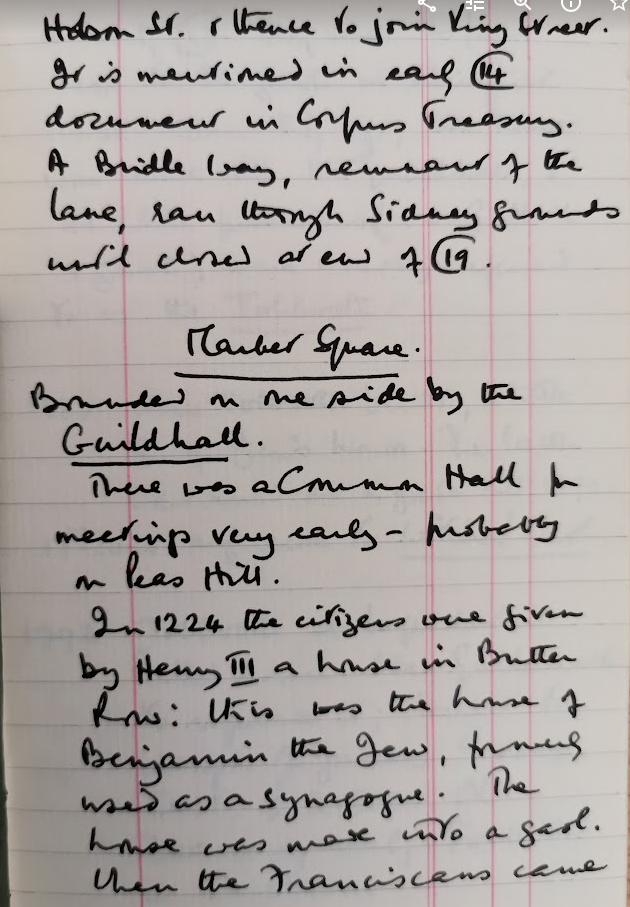 Hobson St. & thence to join King Street.
It is mentioned in early (14)
document in Corpus Treasury.
A Bridle Way, remnant of the
lane, ran through Sidney grounds
until closed at end of (19).
Market Square.
Bounded on one side by the
Guildhall.
There was a Common Hall for
meetings very early - probably
on Peas Hill.
In 1224 the citizens were given
by Henry III a house in Butter
Row: this was the house of
Benjamin the Jew, formerly
used as a synagogue. The
house was made into a gaol.
When the Franciscans came